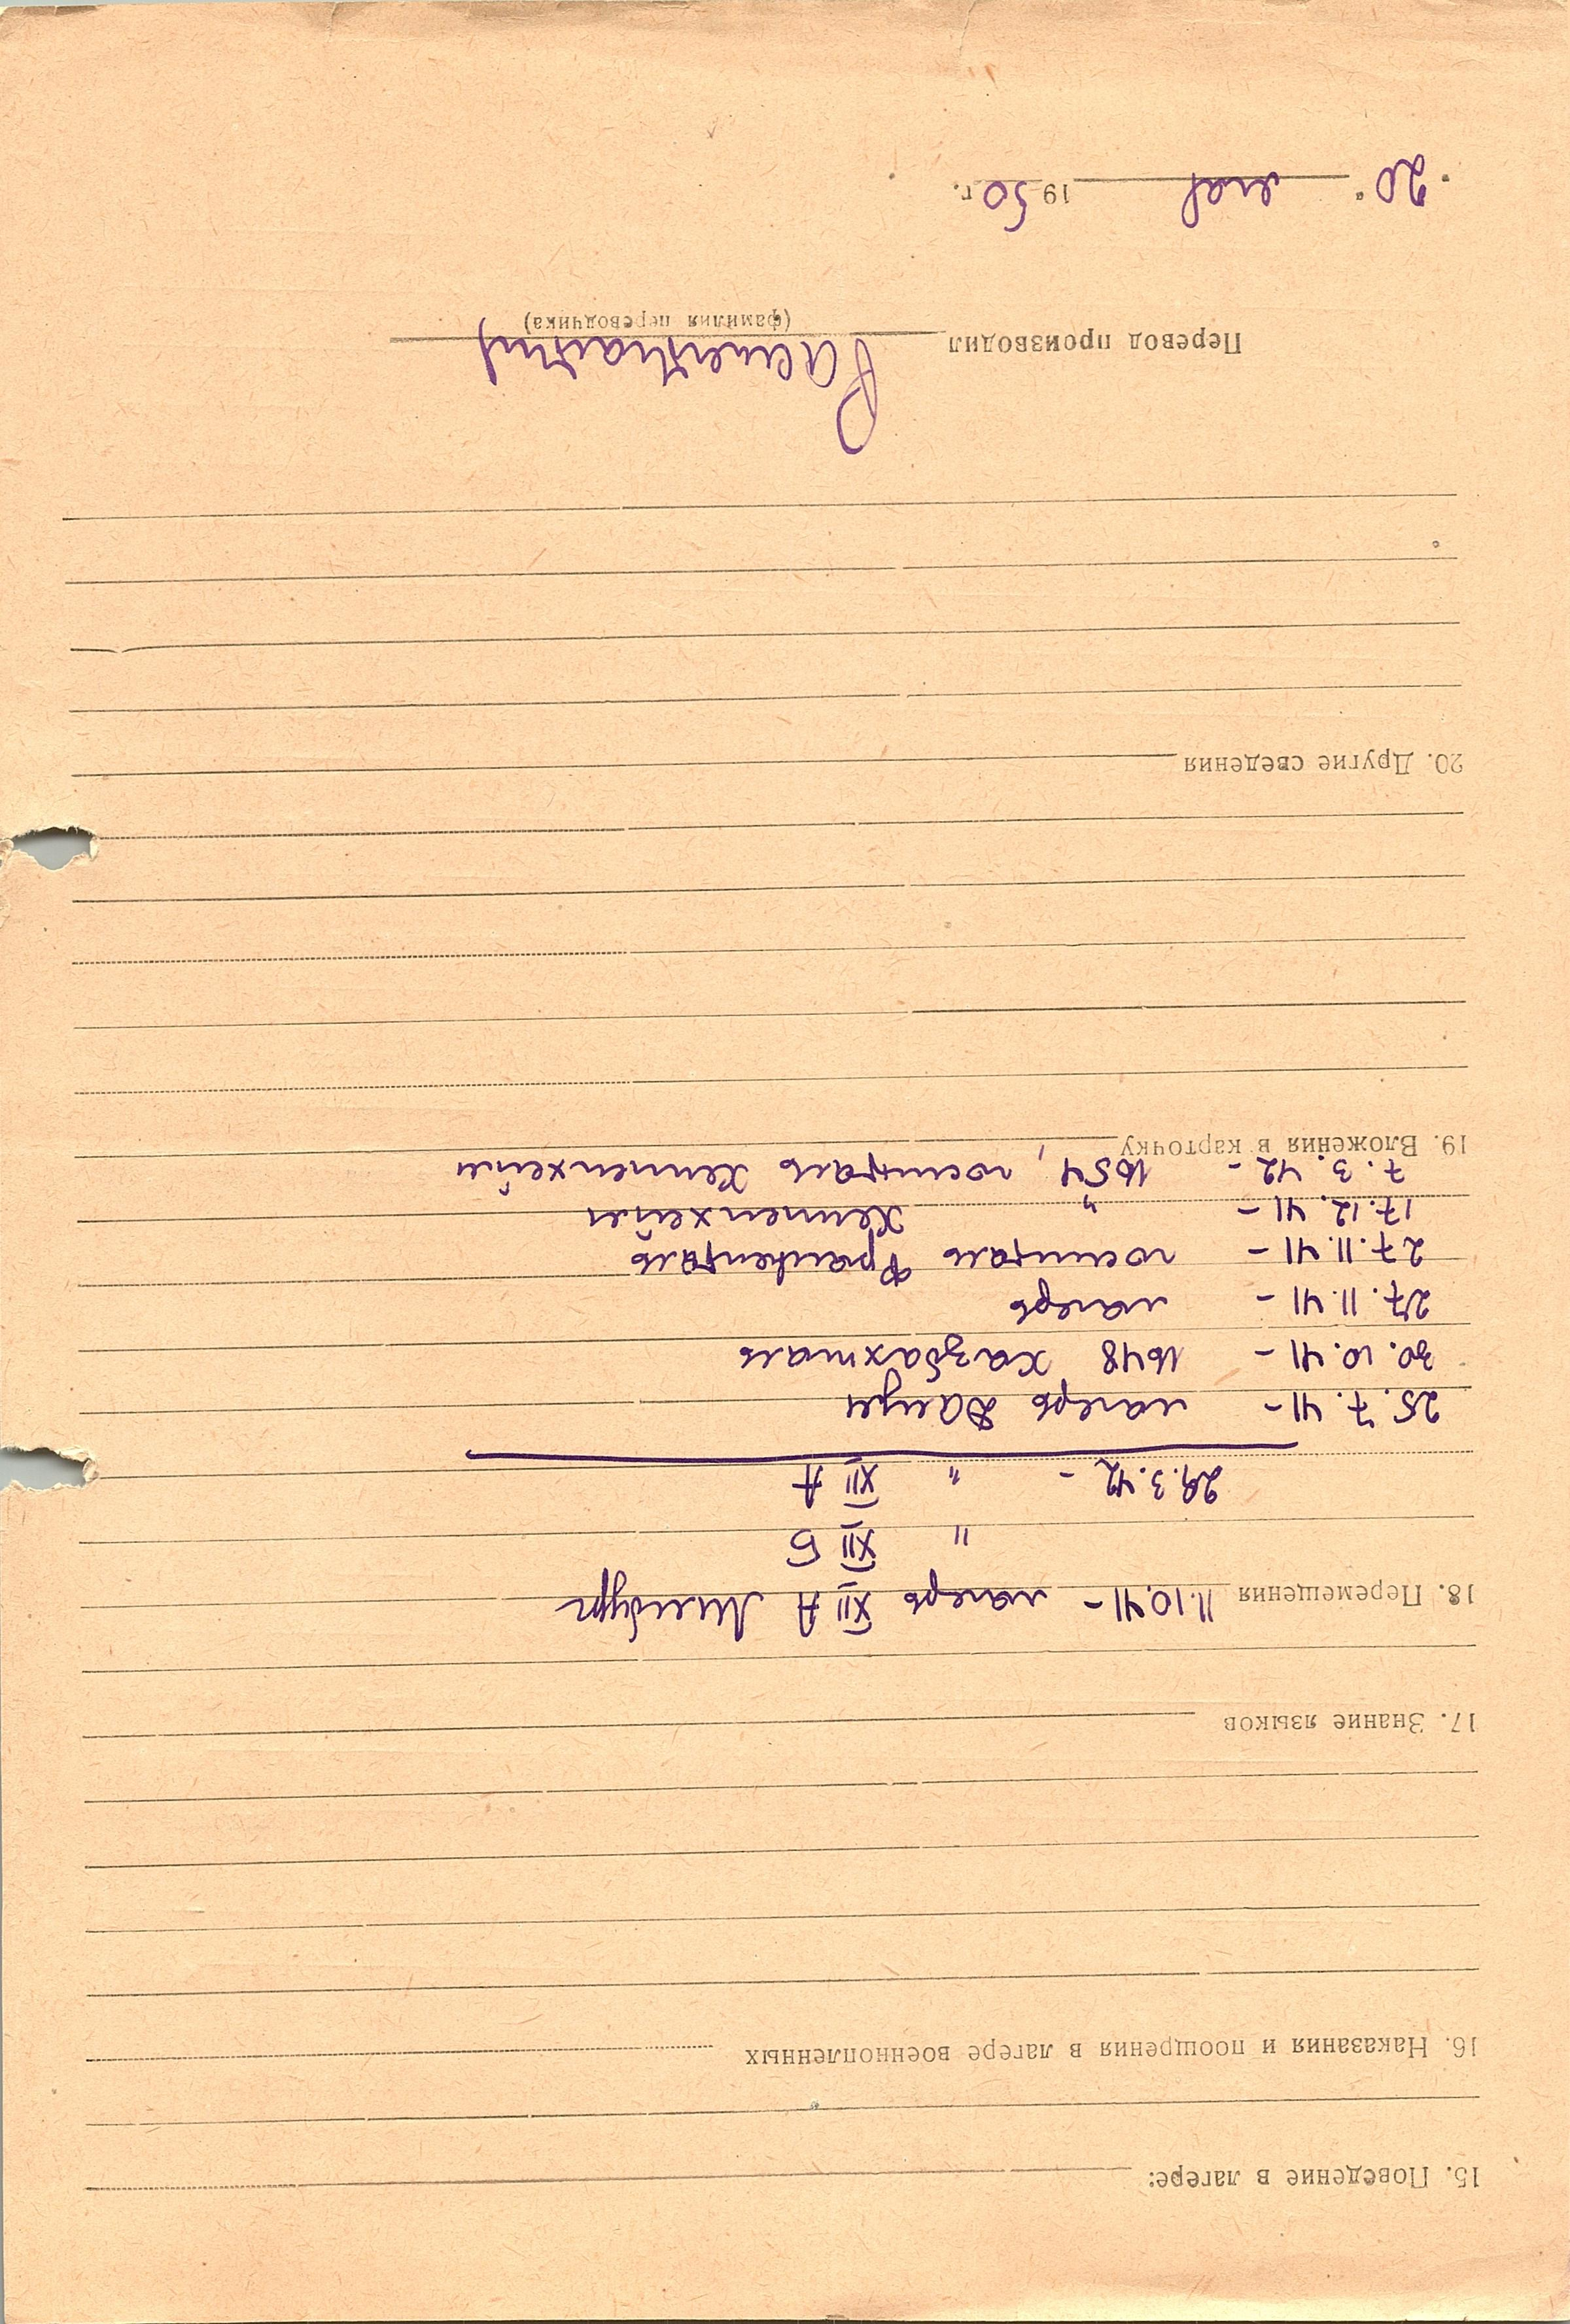 15. Поведение в лагере:
16. Наказания и поощрения в лагере военнопленных
17. Знание языков
18. Перемещения 11.10.41 – лагерь XII А Лимбург
" XII Б
29.3.42 – " XII А
25.7.41 – лагерь
30.10.41 – 1648
27.11.41 – лагерь
27.11.41 – госпиталь Франкенталь
17.12.41 – " Хеппенхейм
7.3.42 – 1654, госпиталь Хеппенхейм
19. Вложения в карточку
20. Другие сведения
Перевод производил
(фамилия переводчика)
"20" мая 1950 г.